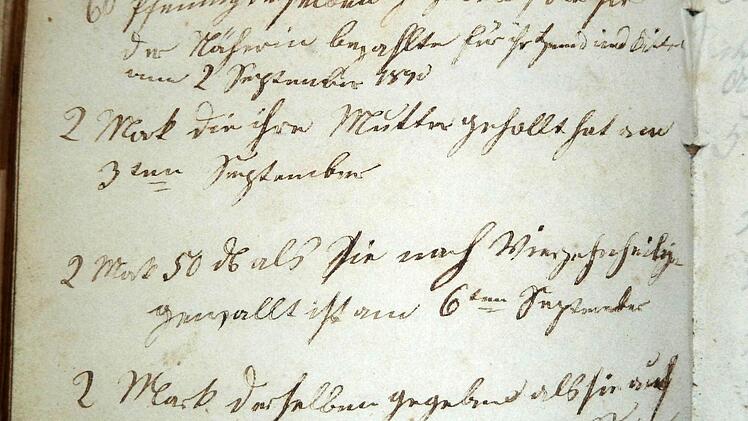 60 Pfennig
der Näherin bezahlte für ihr Hemd und
am 2 September 1890
2 Mark die ihre Mutter gehollt hat am
3ten September
2 Mark 50 ₰ als sie nach Vierzehnheilig
gewallt ist am 6ten September
2 Mark derselben gegeben als sie auf